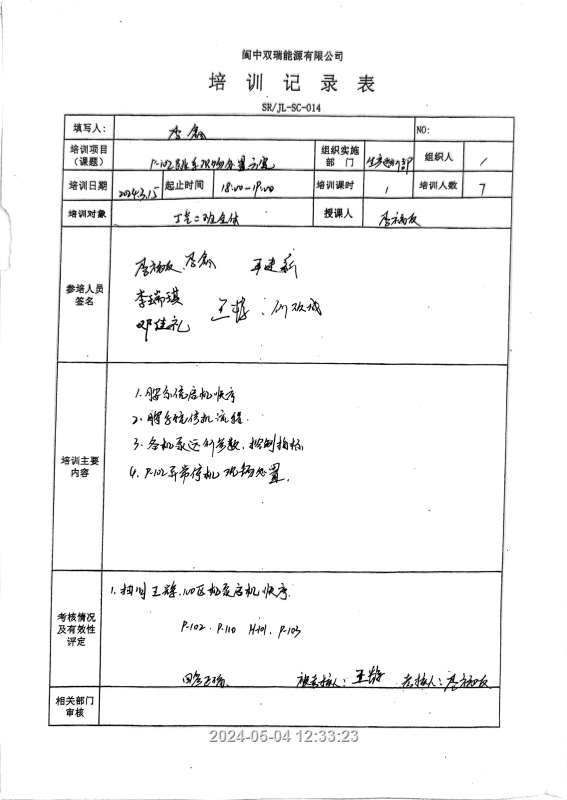 阆中双瑞能源有限公司
培训记录表
SR/JL-SC-014
填写人： NO:
培训项目（课题） P-102 现场处置方案 组织实施部门 生产 部 组织人 /
培训日期 2024.3.15 起止时间 18:00-19:00 培训课时 1 培训人数 7
培训对象 二班全体 授课人
参培人员签名
李瑞琪
邓佳礼
培训主要内容
1. 脱 系统启机顺序
2. 脱 系统停机流程.
3. 各机泵运行参数、控制指标
4. P-102异常停机现场处置.
考核情况及有效性评定
1. 抽问王 100区机泵启机顺序.
P-102. P-110 H-101. P-103
回答正确. 被考核人： 考核人：
相关部门审核
2024-05-04 12:33:23